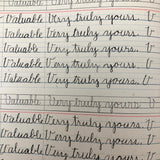 Valuable Very truly yours. V
Valuable Very truly yours. V
Valuable Very truly yours. V
Valuable Very truly yours. V
Valuable Very truly yours V
Valuable Very truly yours. V
Valuable Very truly yours. V
Valuable Very truly yours. V